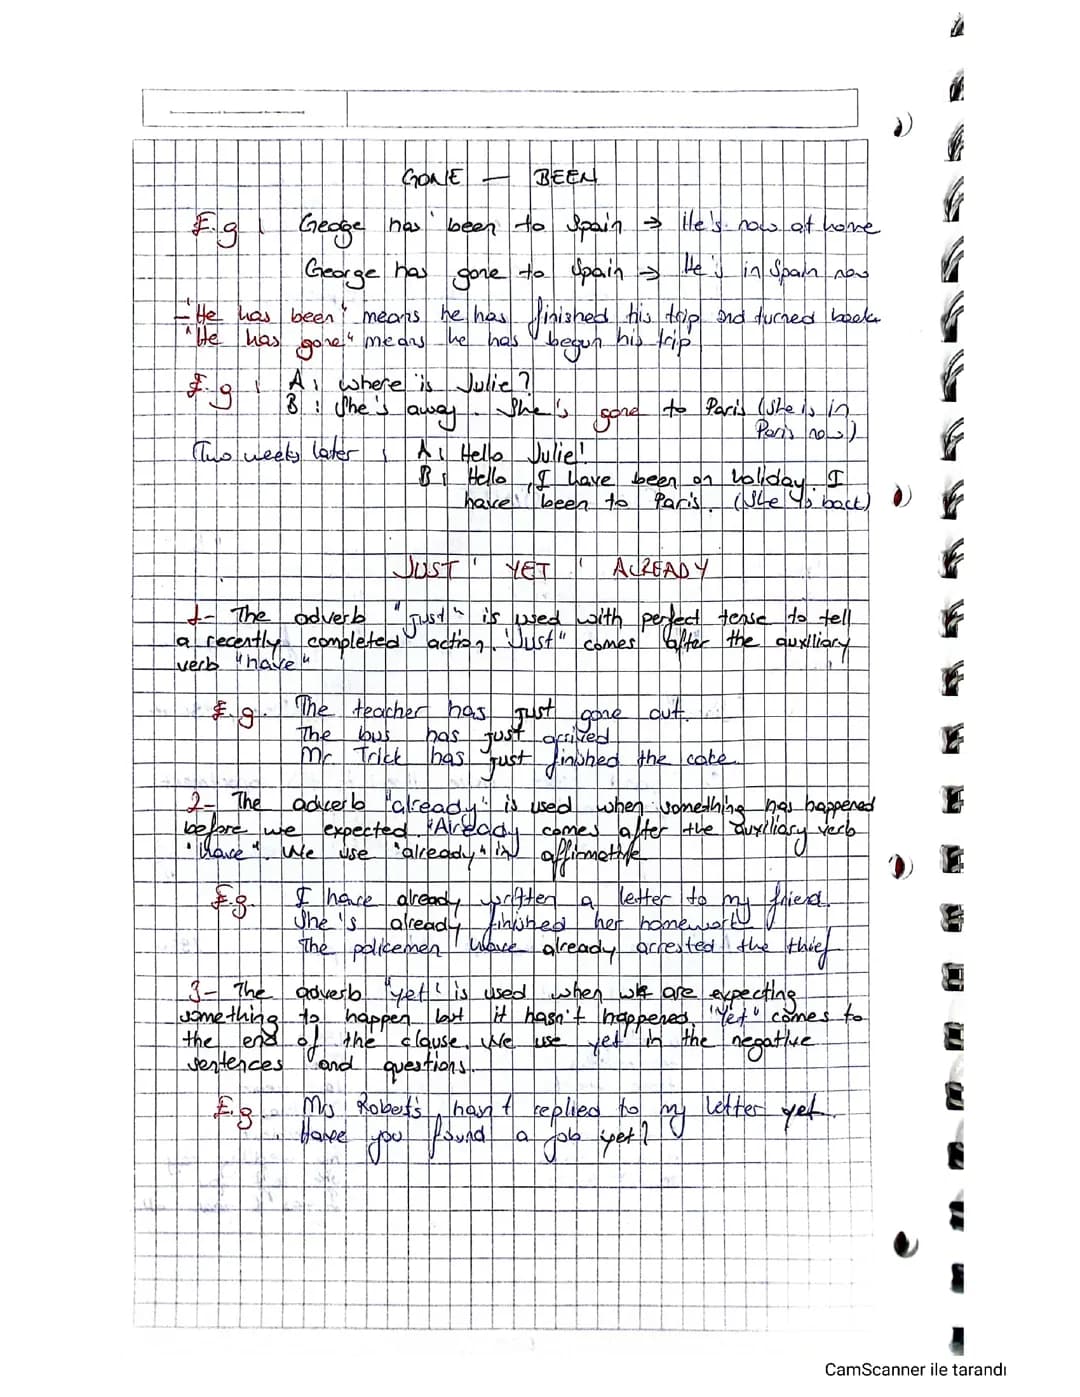 GONE — BEEN
E.g : Geoge has been to Spain → He's now at home
George has gone to Spain → He's in Spain now
- "He has been" means he has finished his trip and turned back
"He has gone" means he has begun his trip
E.g : A: where is Julie?
B: She's away. She's gone to Paris (she is in
Paris now)
Two weeks later : A: Hello Julie!
B: Hello, I have been on holiday. I
have been to Paris. (She is back)
JUST ' YET ' ALREADY
1- The adverb "just" is used with perfect tense to tell
a recently completed action. "Just" comes after the auxiliary
verb "have"
E.g. The teacher has just gone out.
The bus has just arrived
Mr Trick has just finished the cake.
2- The adverb "already" is used when something has happened
before we expected. "Already comes after the auxiliary verb
"have". We use "already" in affirmative
E.g. I have already written a letter to my friend.
She's already finished her homework
The policemen have already arrested the thief
3- The adverb "yet" is used when we are expecting
something to happen but it hasn't happened. "Yet" comes to
the end of the clause. We use yet in the negative
sentences and questions.
E.g. Mrs Roberts hasn't replied to my letter yet.
Have you found a job yet?
CamScanner ile tarandı